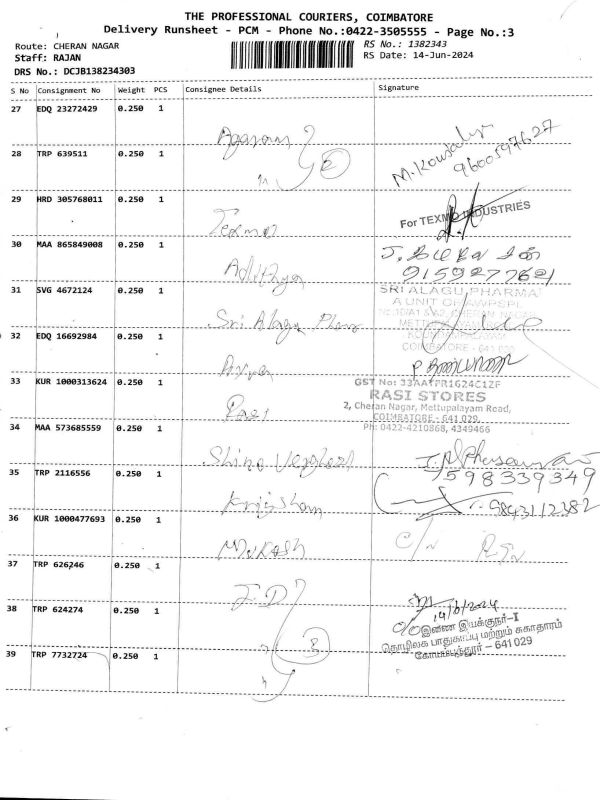 THE PROFESSIONAL COURIERS, COIMBATORE
Delivery Runsheet - PCM - Phone No.:0422-3505555 - Page No.:3
Route: CHERAN NAGAR
RS No.: 1382343
Staff: RAJAN
RS Date: 14-Jun-2024
DRS No.: DCJB138234303
S No Consignment No Weight PCS Consignee Details Signature
27 EDQ 23272429 0.250 1
28 TRP 639511 0.250 1
2
M. Kowsalya
9600597627
29 HRD 305768011 0.250 1
Texmo
For TEXMO INDUSTRIES
30 MAA 865849008 0.250 1
Adithya
9159277621
31 SVG 4672124 0.250 1
Sri Alagu Pharma
SRI ALAGU PHARMA
A UNIT OF
METTUPALAYAM
COIMBATORE - 641 029
32 EDQ 16692984 0.250 1
33 KUR 1000313624 0.250 1
Rasi
GST No: 33AAYFR1624C1ZF
RASI STORES
2, Cheran Nagar, Mettupalayam Road,
COIMBATORE - 641 029
Ph: 0422-4210868, 4349466
34 MAA 573685559 0.250 1
35 TRP 2116556 0.250 1
7598339349
36 KUR 1000477693 0.250 1
Mukash
9843112382
C/N RTN
37 TRP 626246 0.250 1
J.D
38 TRP 624274 0.250 1
3
14/6/2024
இணை இயக்குநர்-I
தொழிலக பாதுகாப்பு மற்றும் சுகாதாரம்
கோயம்புத்தூர் - 641 029
39 TRP 7732724 0.250 1